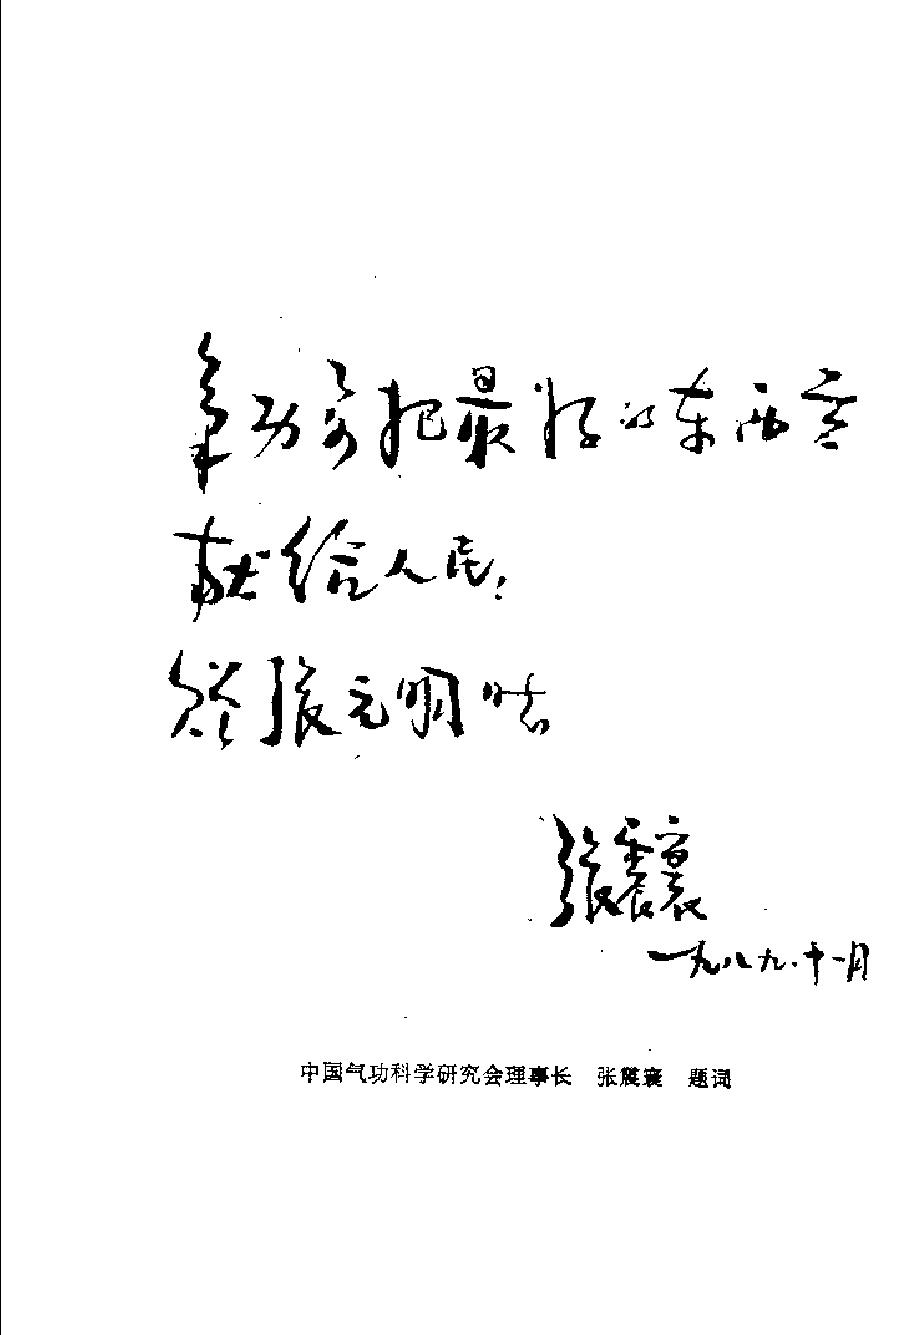 气功要把最好的东西贡
献给人民，
张元明
张震寰
一九八九.十一月
中国气功科学研究会理事长 张震寰 题词